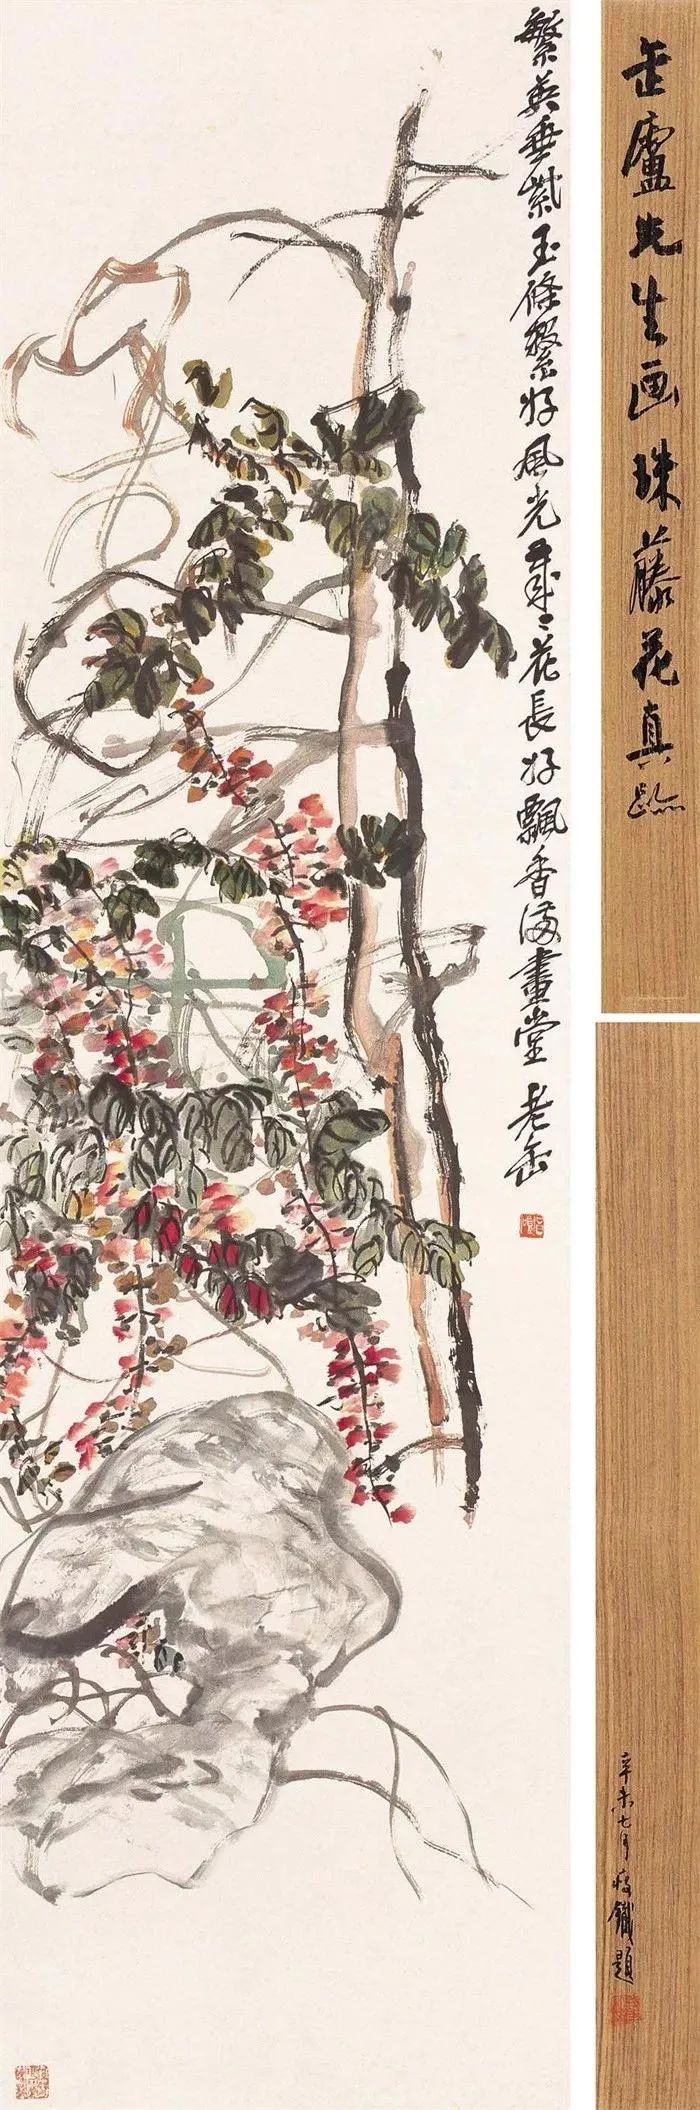 繁英垂紫玉條繫好風光歲=花長好飄香滿畫堂 老缶
缶廬先生画珠藤花真跡
辛未七月瘦鐵題